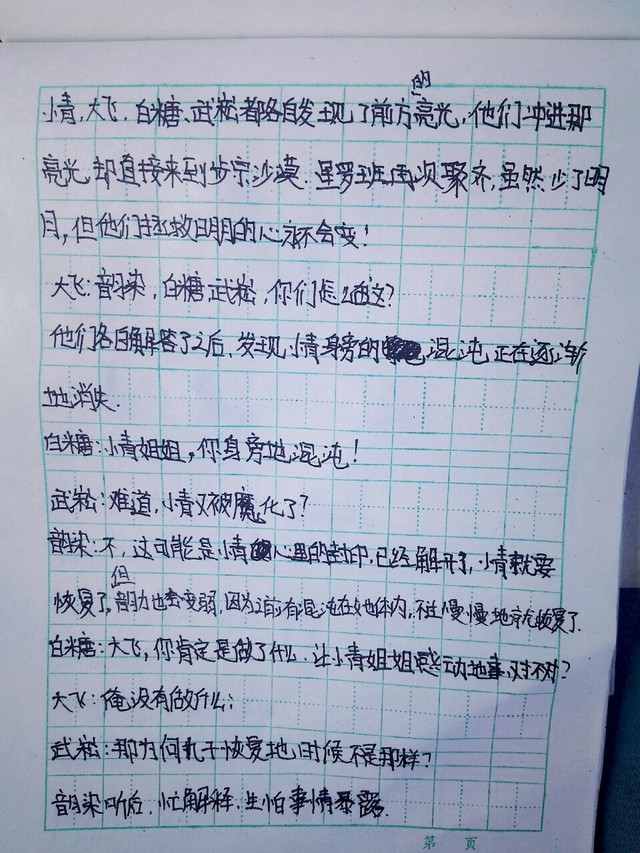 的
小青,大飞,白糖、武崧都各自发现了前方亮光,他们冲进那
亮光,却直接来到步宗沙漠.星罗班再次聚齐,虽然少了明
月,但他们拯救明月的心永不会变!
大飞:韵染,白糖,武崧,你们怎么
他们各自解答了之后,发现小青身旁的混沌,正在逐渐
地消失.
白糖:小青姐姐,你身旁地混沌!
武崧:难道,小青又被魔化了?
韵染:不,这可能是小青心里的封印,已经解开了,小青就要
但
恢复了,韵力也会变弱,因为之前有混沌在她体内,不过慢慢地就恢复了.
白糖:大飞,你肯定是做了什么.让小青姐姐感动地事,对不对?
大飞:俺没有做什么;
武崧:那为何丸子恢复地时候不是那样?
韵染听后,忙解释,生怕事情暴露.
第 页